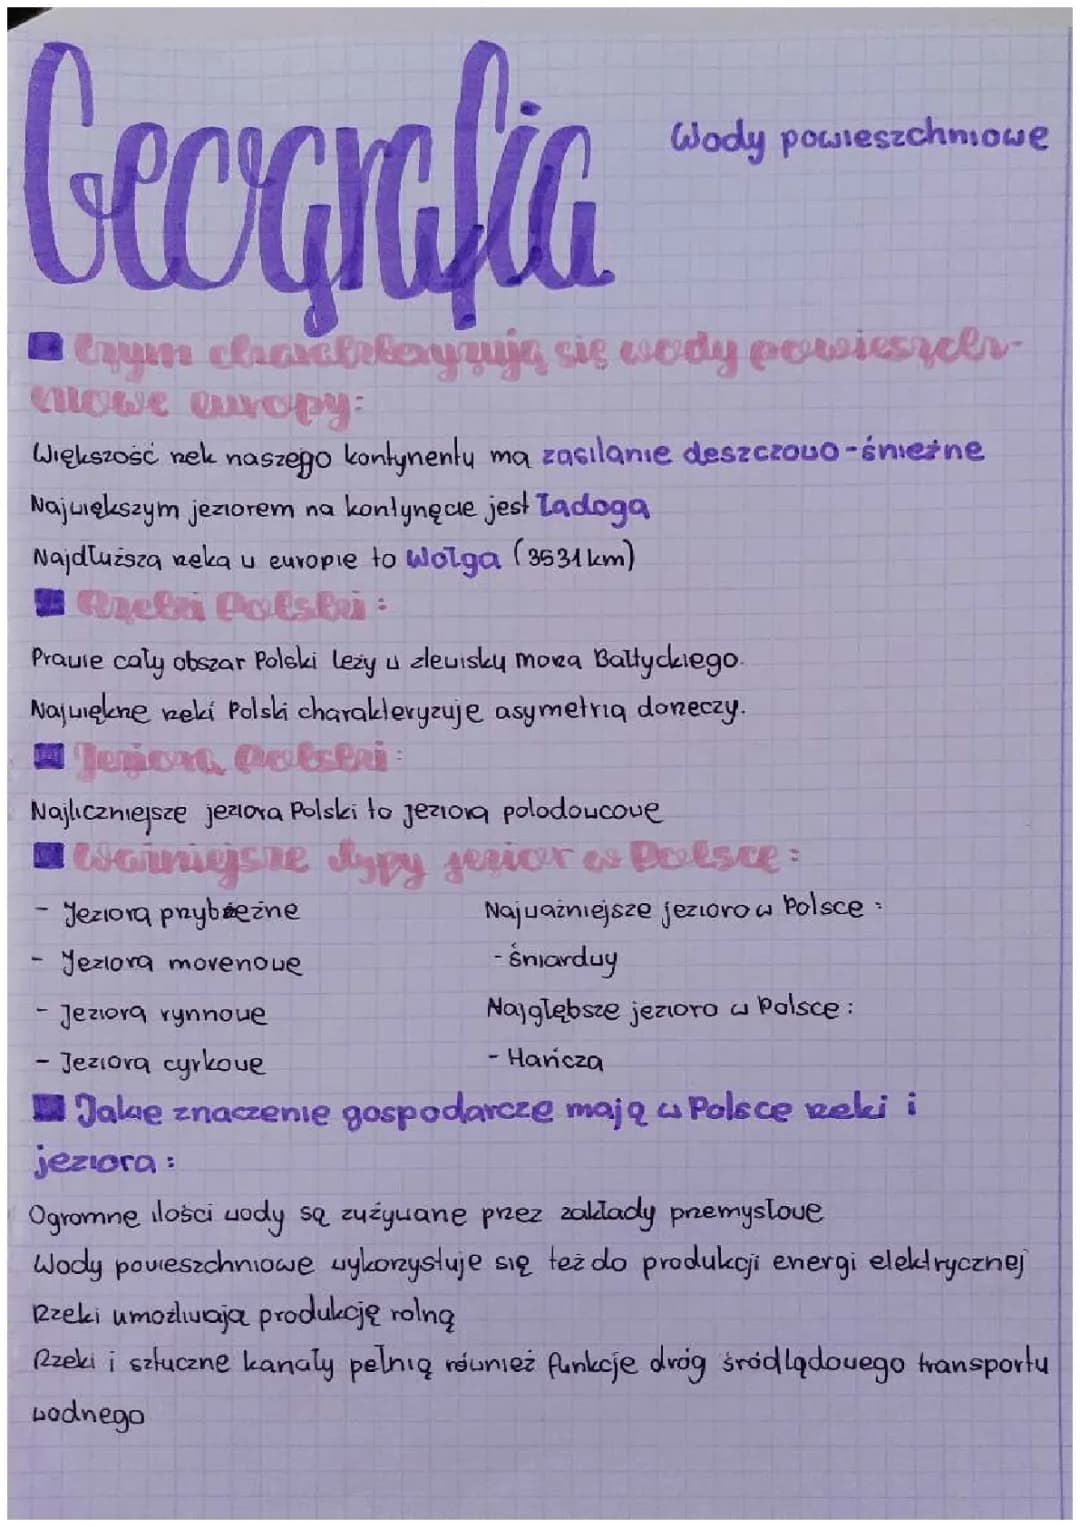 Geografia
Wody powieszchniowe
Czym charakteryzują się wody powieszch-
niowe europy:
Większość rzek naszego kontynentu ma zasilanie deszczowo-śnieżne
Największym jeziorem na kontynęcie jest Ładoga
Najdłuższa rzeka w europie to Wołga (3531 km)
Rzeki Polski:
Prawie cały obszar Polski leży w zlewisku morza Bałtyckiego.
Największe rzeki Polski charakteryzuje asymetria dorzeczy.
Jeziora Polski:
Najliczniejsze jeziora Polski to jeziora polodowcowe
Ważniejsze typy jezior w Polsce:
- Jeziora przybrzeżne
Najważniejsze jezioro w Polsce:
- Jeziora morenowe
- Śniardwy
- Jeziora rynnowe
Najgłębsze jezioro w Polsce:
- Jeziora cyrkowe
- Hańcza
Jakie znaczenie gospodarcze mają w Polsce rzeki i
jeziora:
Ogromne ilości wody są zużywane przez zakłady przemysłowe
Wody powieszchniowe wykorzystuje się też do produkcji energi elektrycznej
Rzeki umożliwiają produkcję rolną
Rzeki i sztuczne kanały pełnią również funkcje dróg śródlądowego transportu
wodnego